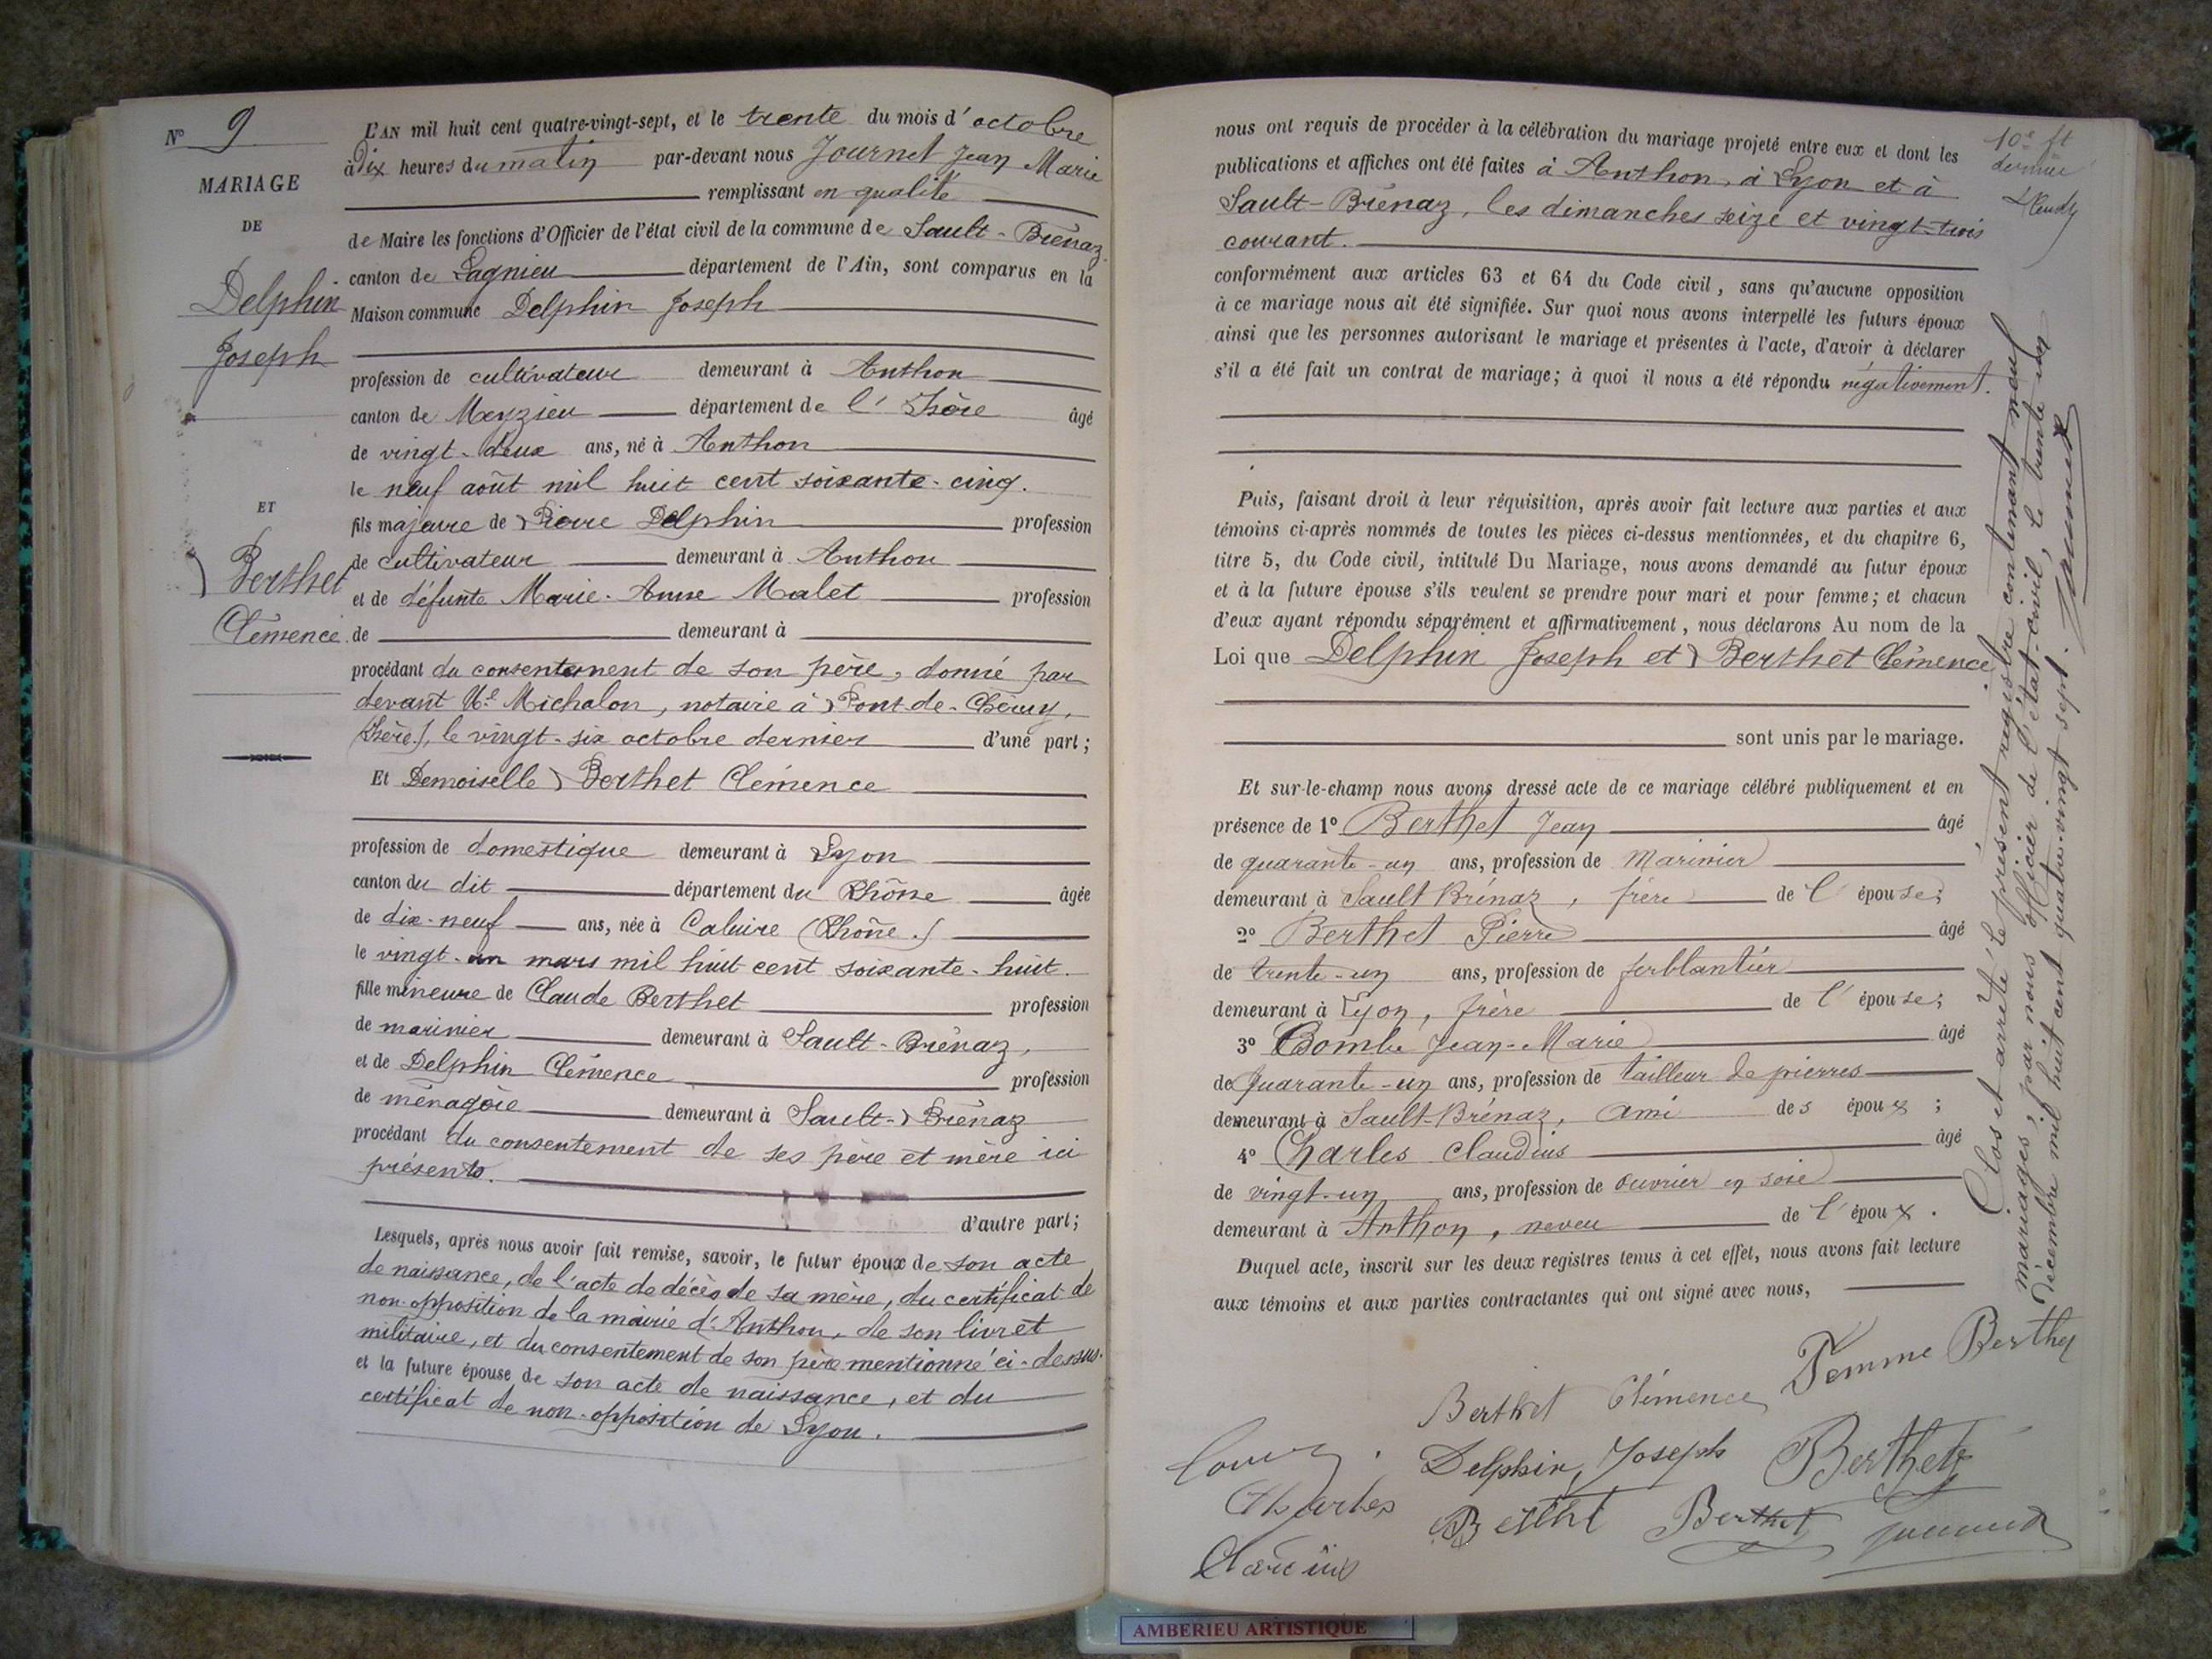 N° 9
MARIAGE
DE
Delphin
Joseph
ET
Berthet
Clémence.
L'AN mil huit cent quatre-vingt-sept, et le trente du mois d'octobre
à dix heures du matin par-devant nous Journet Jean Marie
remplissant en qualité
de Maire les fonctions d'Officier de l'état civil de la commune de Sault-Brénaz
canton de Lagnieu département de l'Ain, sont comparus en la
Maison commune Delphin Joseph
profession de cultivateur demeurant à Anthon
canton de Meyzieu département de l'Isère âgé
de vingt-deux ans, né à Anthon
le neuf août mil huit cent soixante-cinq.
fils majeure de Pierre Delphin profession
de cultivateur demeurant à Anthon
et de défunte Marie-Anne Malet profession
de demeurant à
procédant du consentement de son père, donné par
devant Me Michalon, notaire à Pont-de-Chéruy,
(Isère), le vingt-six octobre dernier d'une part;
Et Demoiselle Berthet Clémence
profession de domestique demeurant à Lyon
canton du dit département du Rhône âgée
de dix-neuf ans, née à Caluire (Rhône.)
le vingt-un mars mil huit cent soixante-huit.
fille mineure de Claude Berthet profession
de marinier demeurant à Sault-Brénaz,
et de Delphin Clémence profession
de ménagère demeurant à Sault-Brénaz
procédant du consentement de ses père et mère ici
présents.
d'autre part;
Lesquels, après nous avoir fait remise, savoir, le futur époux de son acte
de naissance, de l'acte de décès de sa mère, du certificat de
non-opposition de la mairie d'Anthon, de son livret
militaire, et du consentement de son père mentionné ci-dessus.
et la future épouse de son acte de naissance, et du
certificat de non-opposition de Lyon.
nous ont requis de procéder à la célébration du mariage projeté entre eux et dont les
publications et affiches ont été faites à Anthon, à Lyon et à
Sault-Brénaz, les dimanches seize et vingt-trois
courant.
conformément aux articles 63 et 64 du Code civil, sans qu'aucune opposition
à ce mariage nous ait été signifiée. Sur quoi nous avons interpellé les futurs époux
ainsi que les personnes autorisant le mariage et présentes à l'acte, d'avoir à déclarer
s'il a été fait un contrat de mariage; à quoi il nous a été répondu négativement.
Puis, faisant droit à leur réquisition, après avoir fait lecture aux parties et aux
témoins ci-après nommés de toutes les pièces ci-dessus mentionnées, et du chapitre 6,
titre 5, du Code civil, intitulé Du Mariage, nous avons demandé au futur époux
et à la future épouse s'ils veulent se prendre pour mari et pour femme; et chacun
d'eux ayant répondu séparément et affirmativement, nous déclarons Au nom de la
Loi que Delphin Joseph et Berthet Clémence
sont unis par le mariage.
Et sur-le-champ nous avons dressé acte de ce mariage célébré publiquement et en
présence de 1° Berthet Jean âgé
de quarante-un ans, profession de marinier
demeurant à Sault Brénaz, frère de l'épouse;
2° Berthet Pierre âgé
de trente-un ans, profession de ferblantier
demeurant à Lyon, frère de l'épouse;
3° Combe Jean-Marie âgé
de quarante-un ans, profession de tailleur de pierres
demeurant à Sault-Brénaz, ami des époux;
4° Charles Claudius âgé
de vingt-un ans, profession de ouvrier en soie
demeurant à Anthon, neveu de l'époux.
Duquel acte, inscrit sur les deux registres tenus à cet effet, nous avons fait lecture
aux témoins et aux parties contractantes qui ont signé avec nous,
Femme Berthet
Berthet Clémence
Delphin Joseph Berthet
Charles Berthet Berthet Journet
10e ft
dernier
Clos et arrêté le présent registre contenant neuf
mariages, par nous officier de l'état-civil, le trente un
décembre mil huit cent quatre-vingt sept. Journet
AMBERIEU ARTISTIQUE